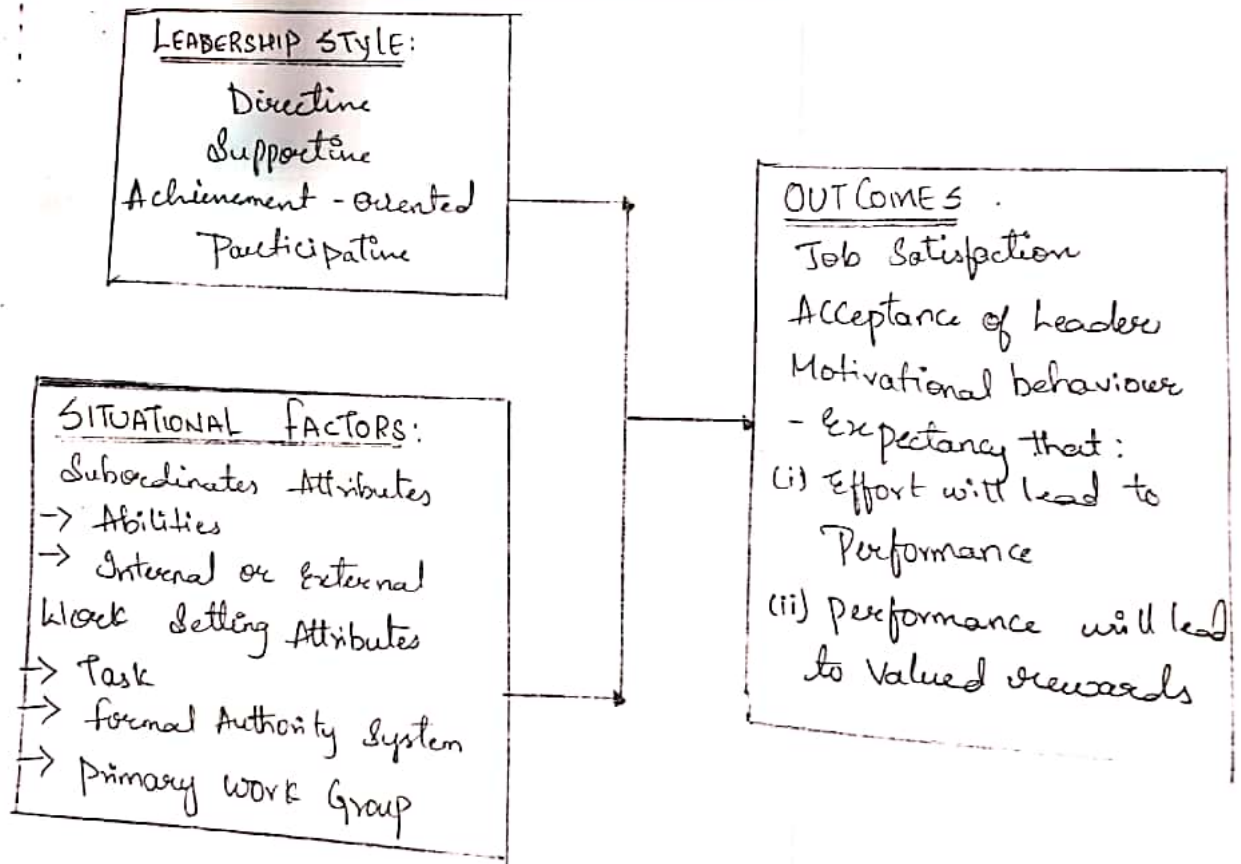 LEADERSHIP STYLE:
Directive
Supportive
Achievement - Oriented
Participative
SITUATIONAL FACTORS:
Subordinates Attributes
-> Abilities
-> Internal or External
Work Setting Attributes
-> Task
-> formal Authority System
-> Primary Work Group
OUTCOMES.
Job Satisfaction
Acceptance of Leader
Motivational behaviour
- Expectancy that:
(i) Effort will lead to
Performance
(ii) Performance will lead
to Valued rewards